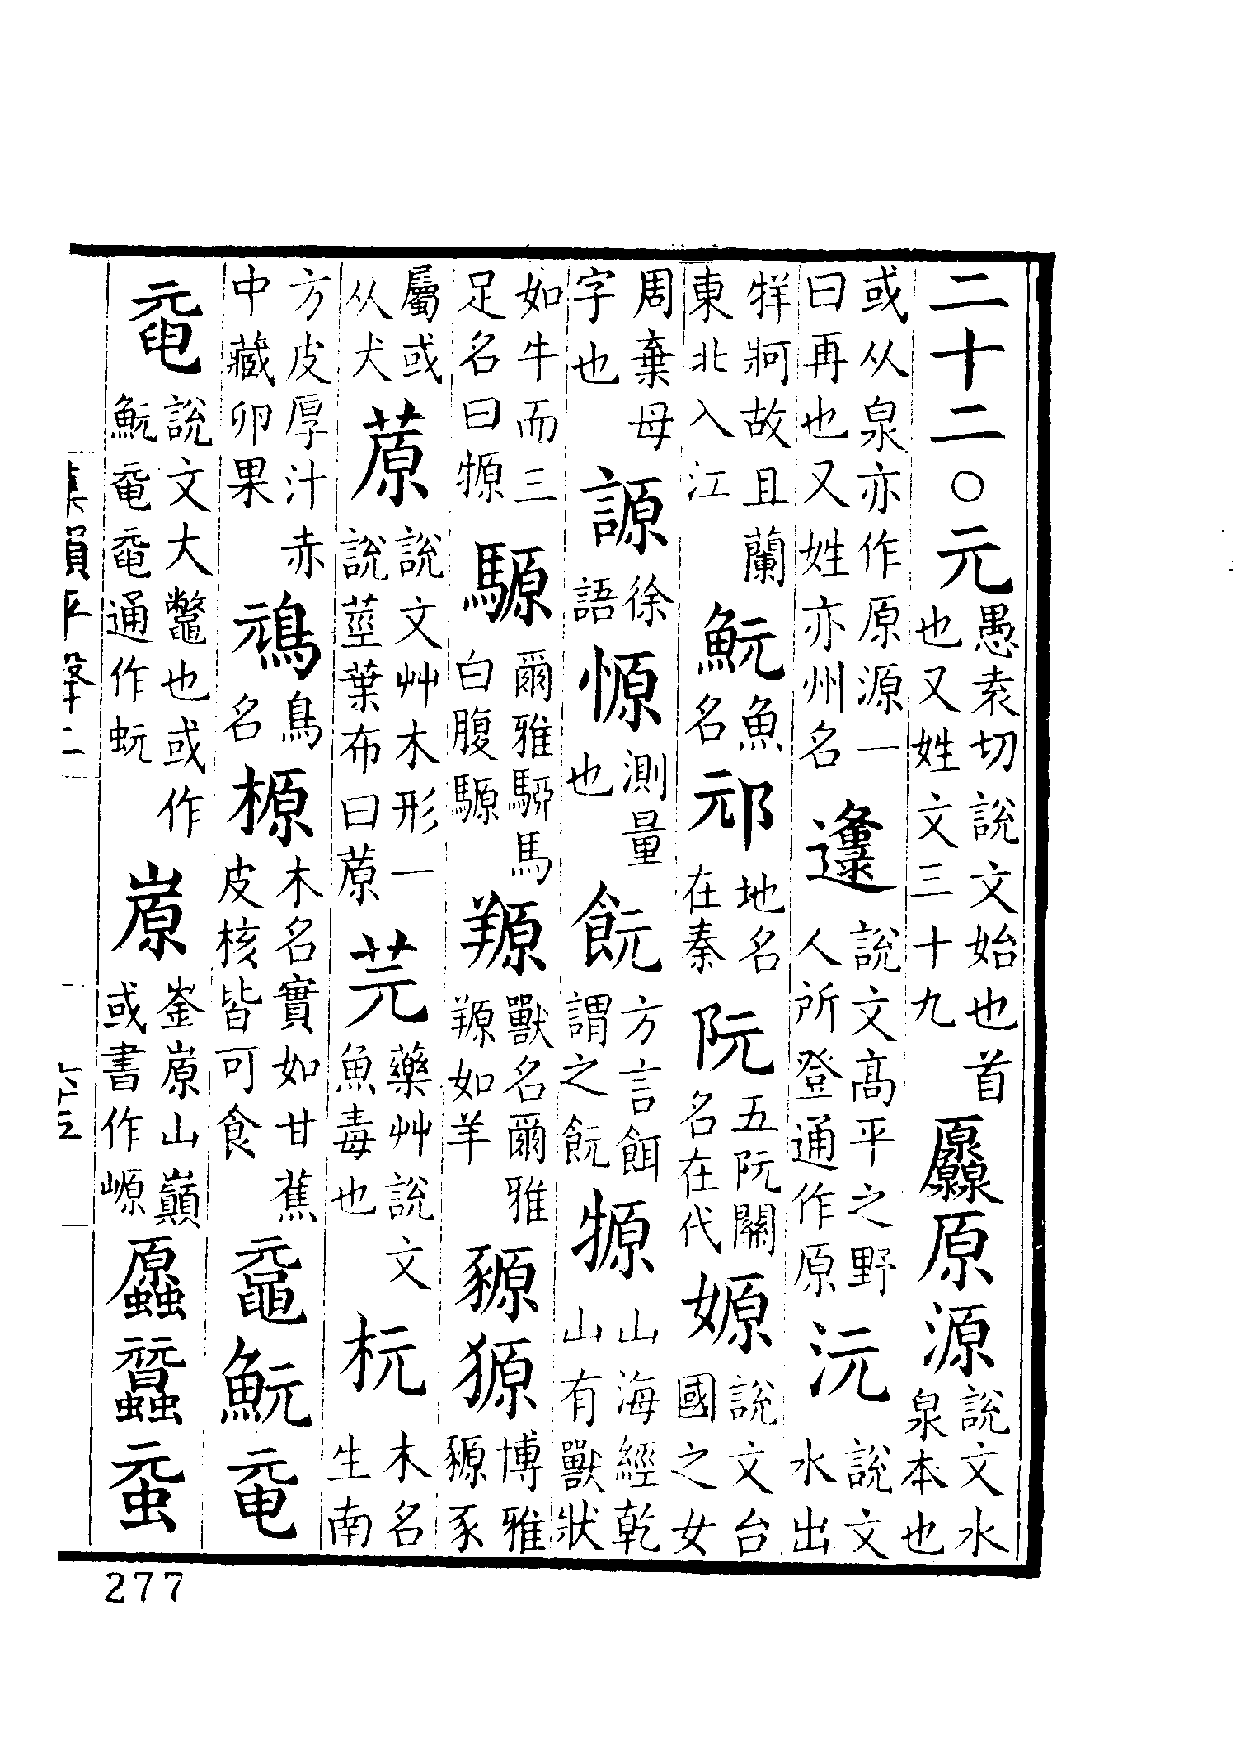 二十二○元愚袁切說文始也首也又姓文三十九厵原源說文水泉本也
或从泉亦作原源一曰再也又姓亦州名邍說文高平之野人所登通作原沅說文水出
牂牁故且蘭東北入江魭魚名邧地名在秦阮五阮關名在代嫄說文台國之女
周棄母字也謜徐語測量也䬧方言餌謂之䬧山海經乾山有獸狀
如牛而三足名曰騵爾雅騮馬白腹騵羱獸名爾雅羱如羊豲獂博雅豲豕
屬或从犬蒝說文艸木形一說莖葉布曰蒝芫藥艸說文魚毒也杬木名生南
方皮厚汁赤中藏卵果䲮鳥名榞木名實如甘蕉皮核皆可食黿魭
說文大鼈也或作魭通作蚖崟山巔或書作
集韻平聲二
277